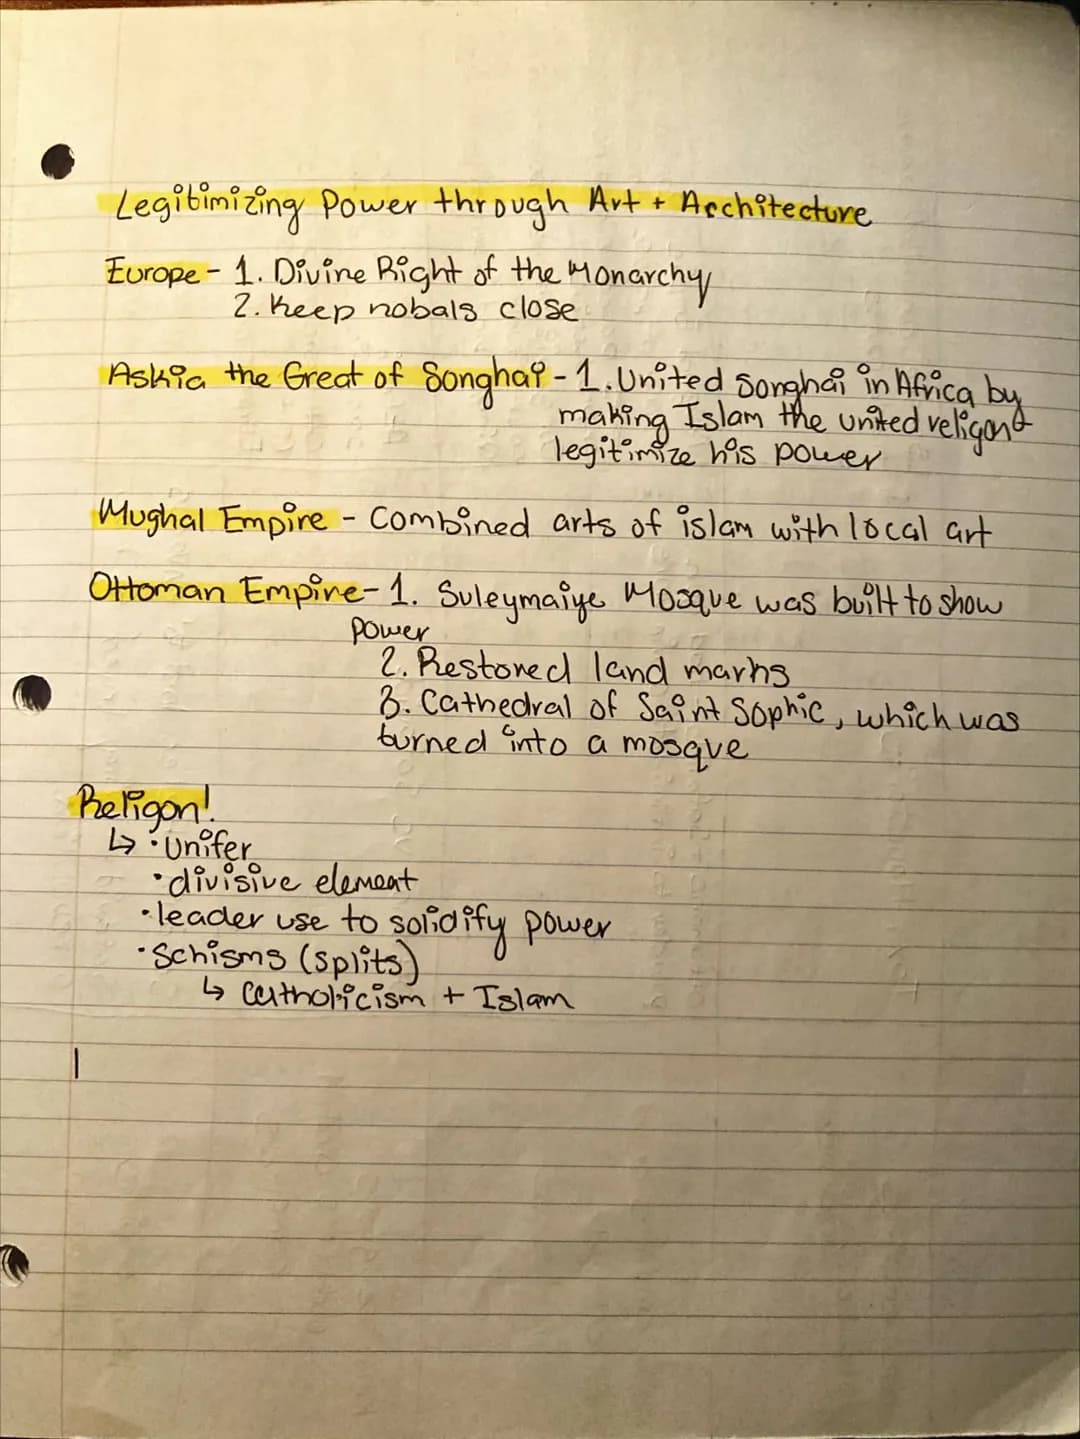 Legitimizing Power through Art + Architecture
Europe - 1. Divine Right of the Monarchy
2. Keep nobals close
Askia the Great of Songhai - 1. United Songhai in Africa by
making Islam the united religon +
legitimize his power
Mughal Empire - Combined arts of islam with local art
Ottoman Empire - 1. Suleymaiye Mosque was built to show
power
2. Restored land marks
3. Cathedral of Saint Sophic, which was
turned into a mosque
Religon!
↳ • Unifer
• divisive element
• leader use to solidify power
• Schisms (splits)
↳ Catholicism + Islam